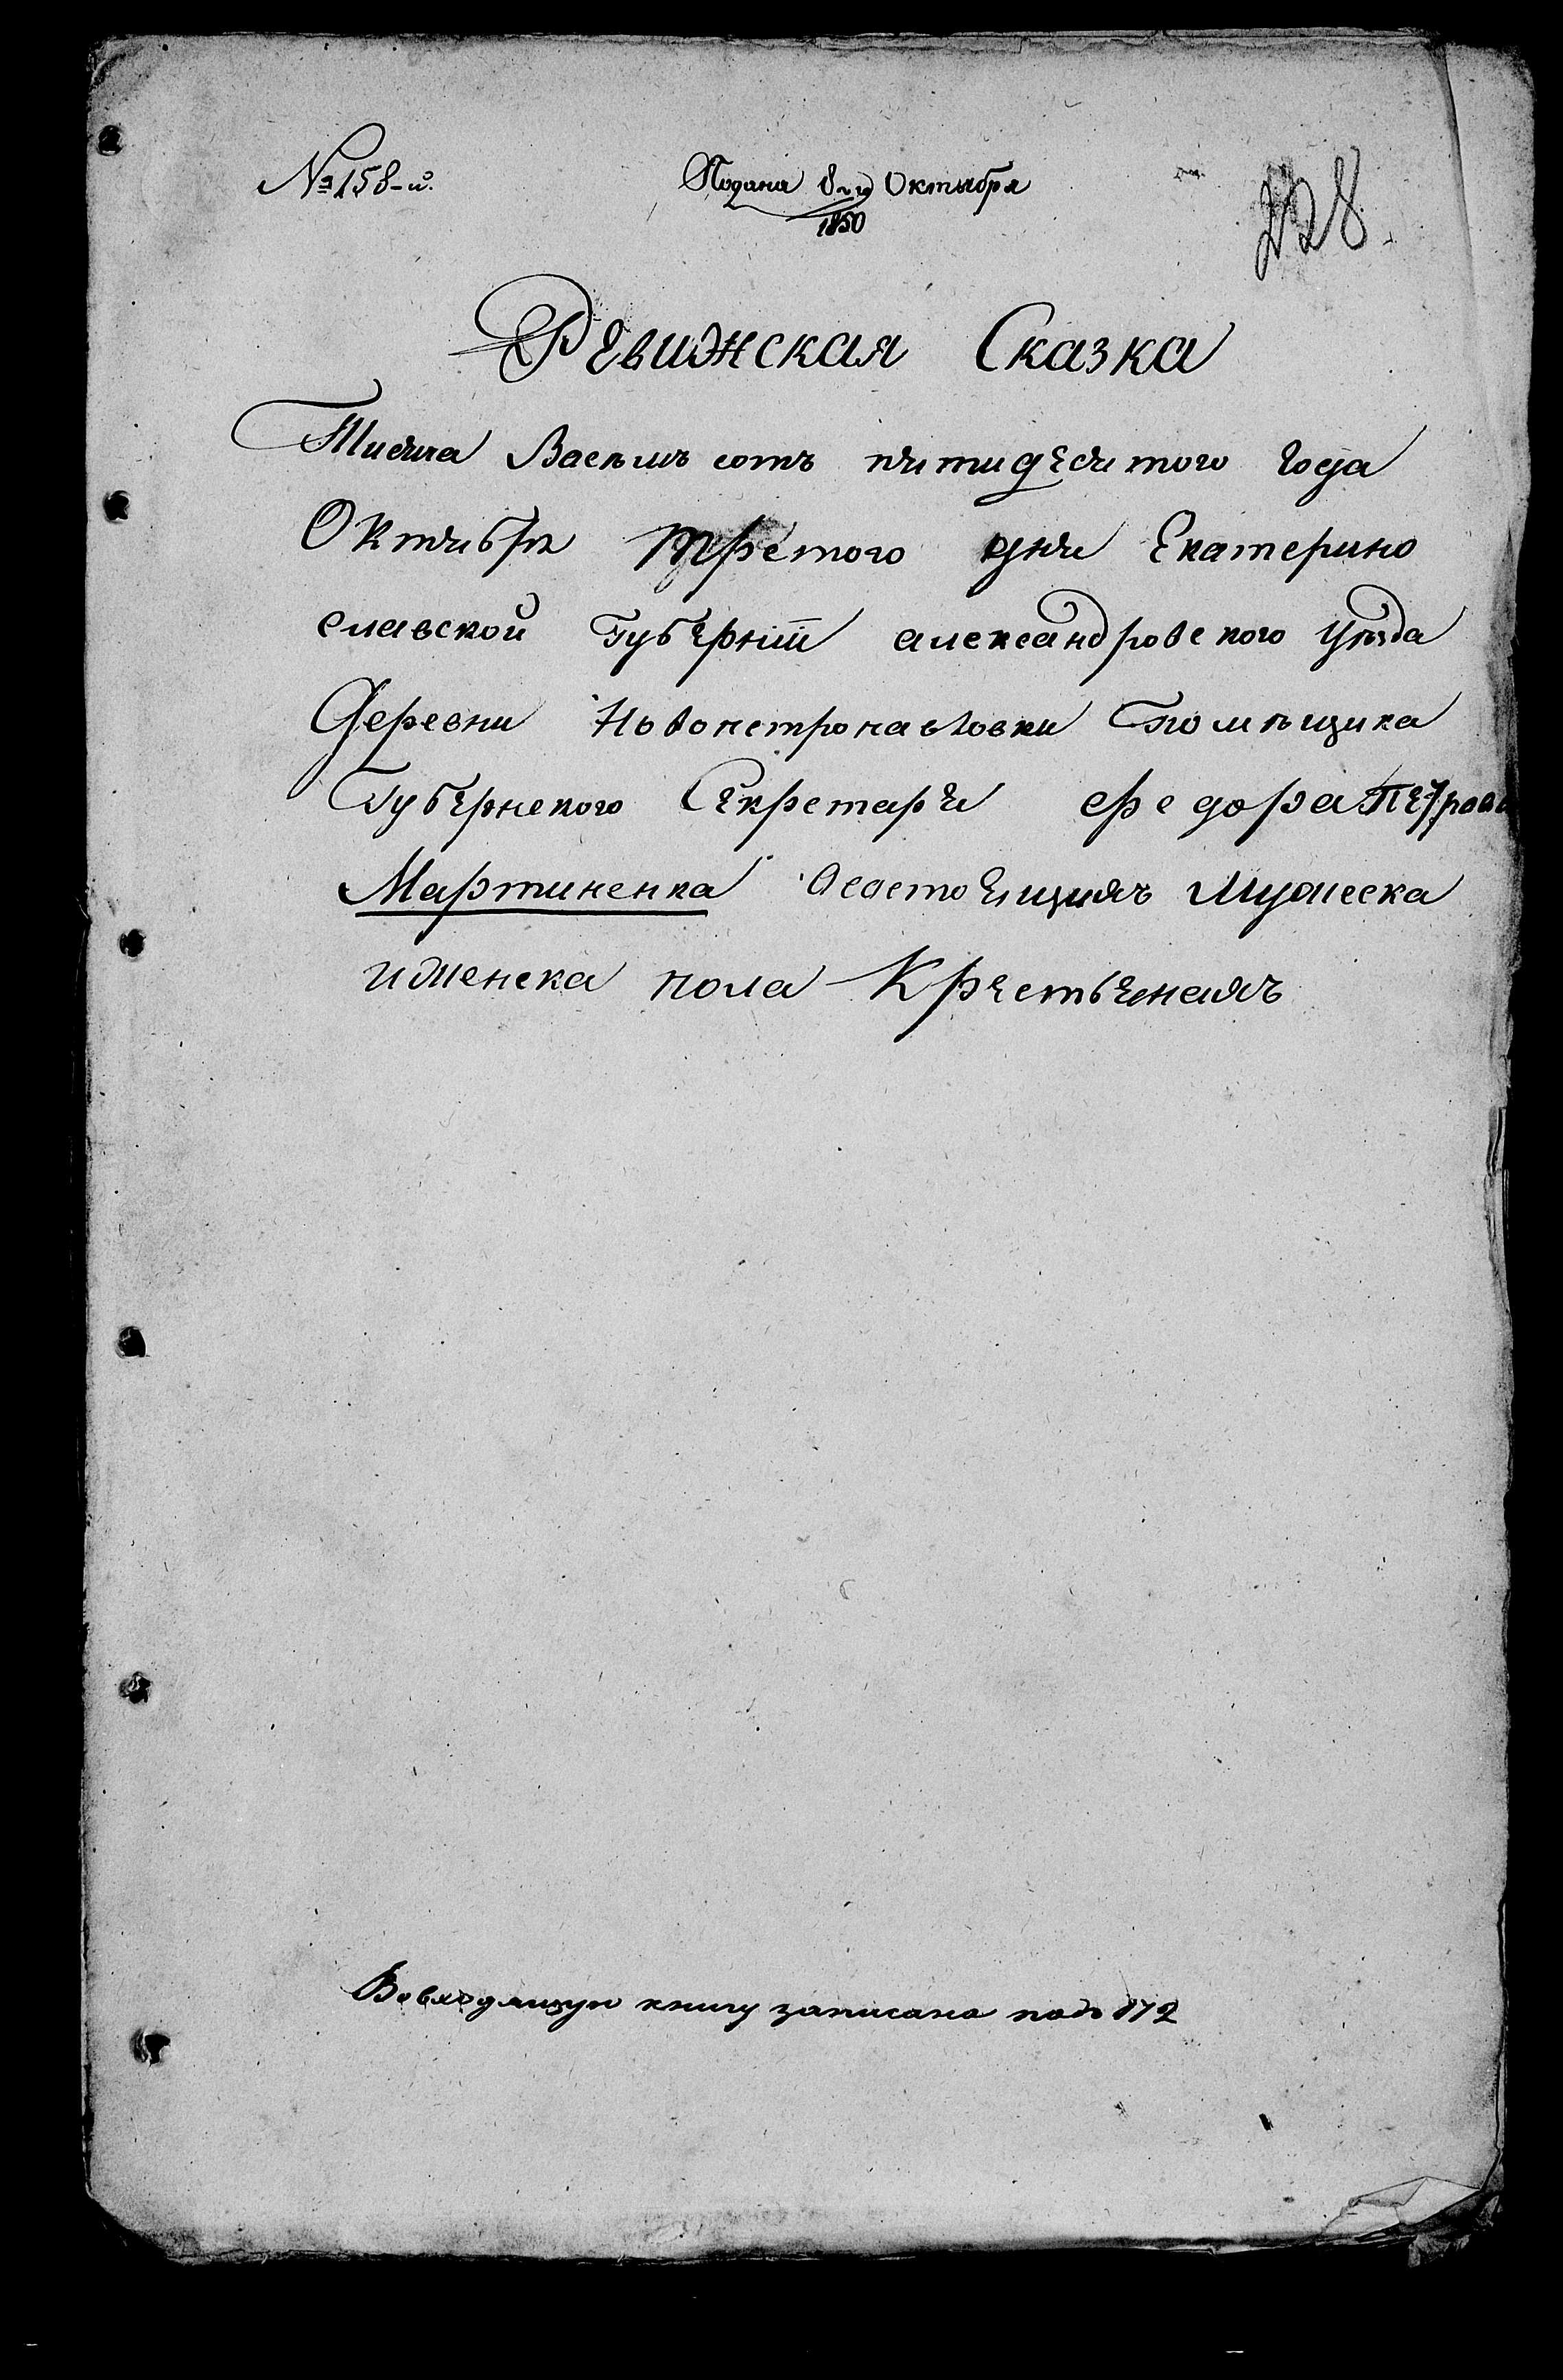 № 158-й.
Подана 8го Октября
1850
228.
Ревижская Сказка
Тисяча Восѣмъ сотъ пятидесятого года
Октября третого дня Екатерино
славской Губерніи александровского уѣзда
Деревни Новопетропавловки Помѣщика
Губернского Секретаря Федора Петрова
Мартиненка Осостоящихъ мужеска
иженска пола Крестьянахъ
Вовходящую книгу записана подъ 172